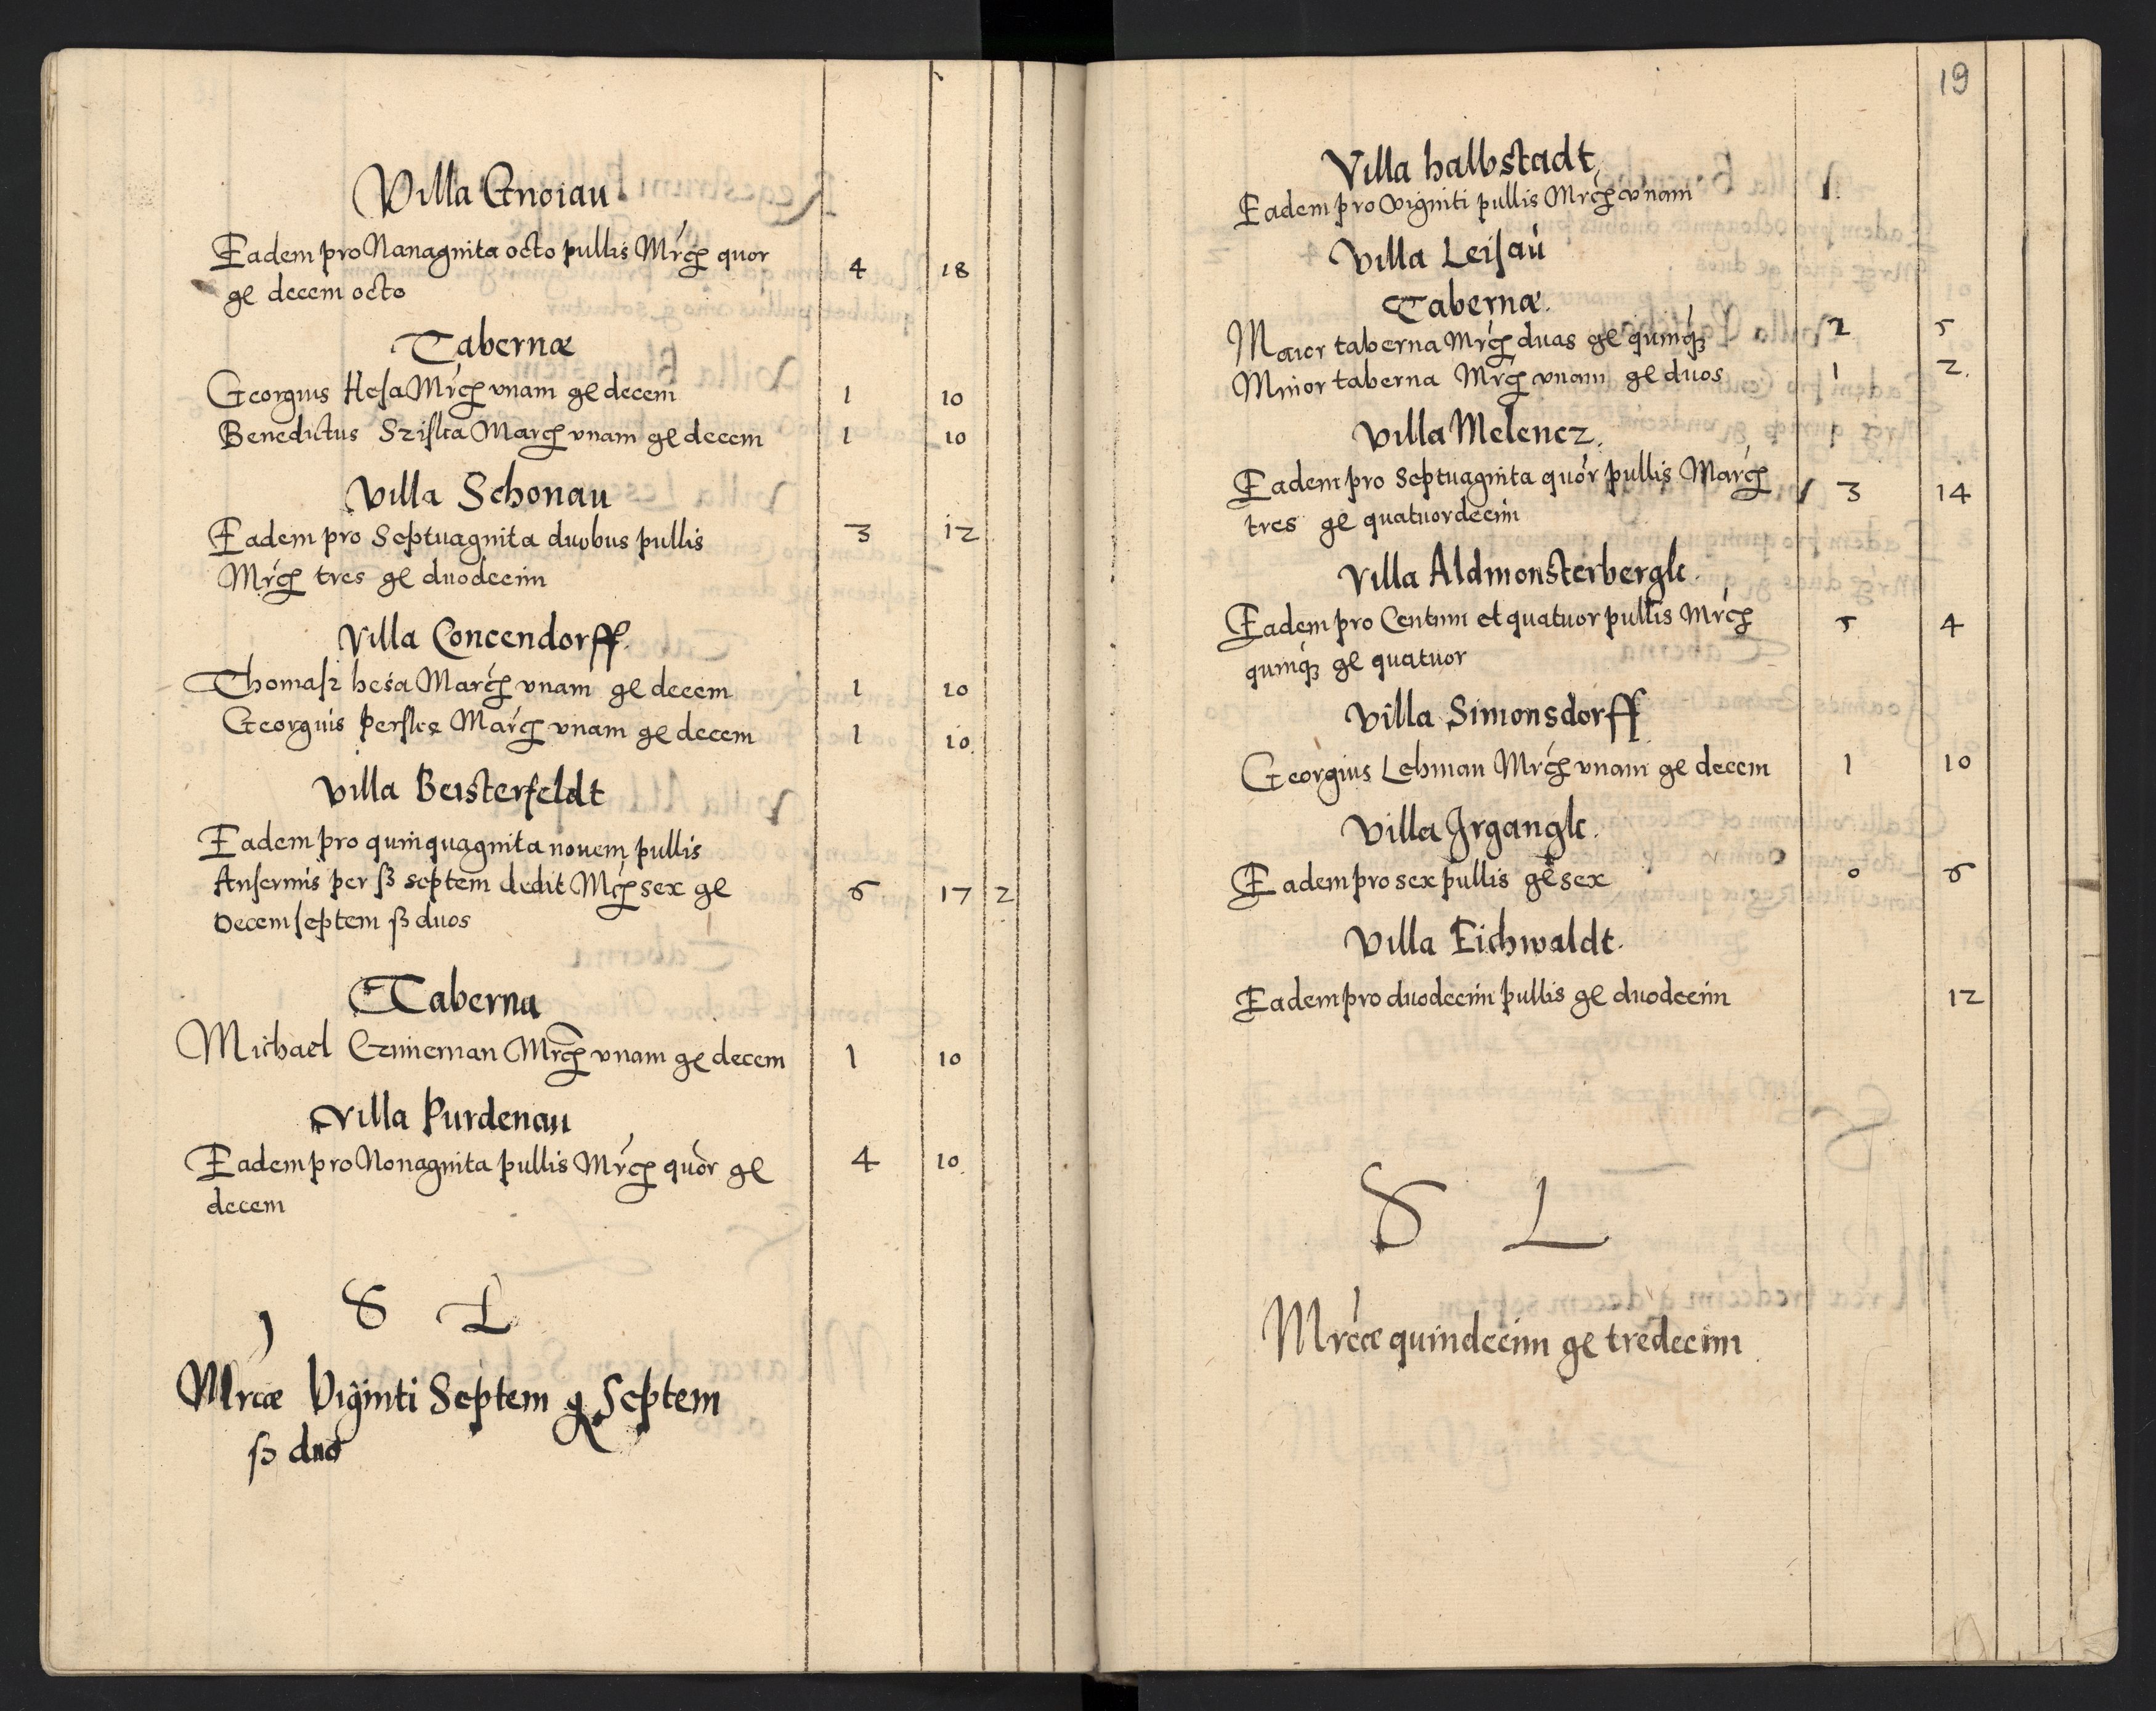 Villa Gnoiau
Eadem pro Nanaginta octo pullis Mrcɥ quor 4 18
gl decem octo
Tabernæ
Georgius Hesa Mrcɥ vnam gl decem 1 10
Benedictus Sziska Marcɥ vnam gl decem 1 10
Villa Schonau
Eadem pro Septuaginta duobus pullis 3 12
Mrcɥ tres gl duodecim
Villa Concendorff
Thomasz hesa Marcɥ vnam gl decem 1 10
Georgius Marcɥ vnam gl decem 1 10
Villa Beisterfeldt
Eadem pro quinquaginta nouem pullis
Anserinis per ß septem dedit Mrcɥ sex gl 6 17 2
Decem septem ß duos
Taberna
Michael Mrcɥ vnam gl decem 1 10
Villa Purdenau
Eadem pro Nonaginta pullis Mrcɥ quor gl 4 10
decem
S L
Mrcæ Viginti Septem g Septem
ß duo
19
Villa halbstadt
Eadem pro Viginti pullis Mrcɥ vnam 1
Villa Leisau
Tabernæ
Maior taberna Mrcɥ duas gl quinqꝫ 2 5
Minor taberna Mrcɥ vnam gl duos 1 2
Villa Melencz
Eadem pro Septuaginta quor pullis Marcɥ 3 14
tres gl quatuordecim
Villa Aldmonsterbergk
Eadem pro Centum et quatuor pullis Mrcɥ 5 4
quinqꝫ gl quatuor
Villa Simonsdorff
Georgius Lehman Mrcɥ vnam gl decem 1 10
Villa Irgangk
Eadem pro sex pullis gl sex 0 6
Villa Eichwaldt
Eadem pro duodecim pullis gl duodecim 12
S L
Mrcæ quindecim gl tredecim